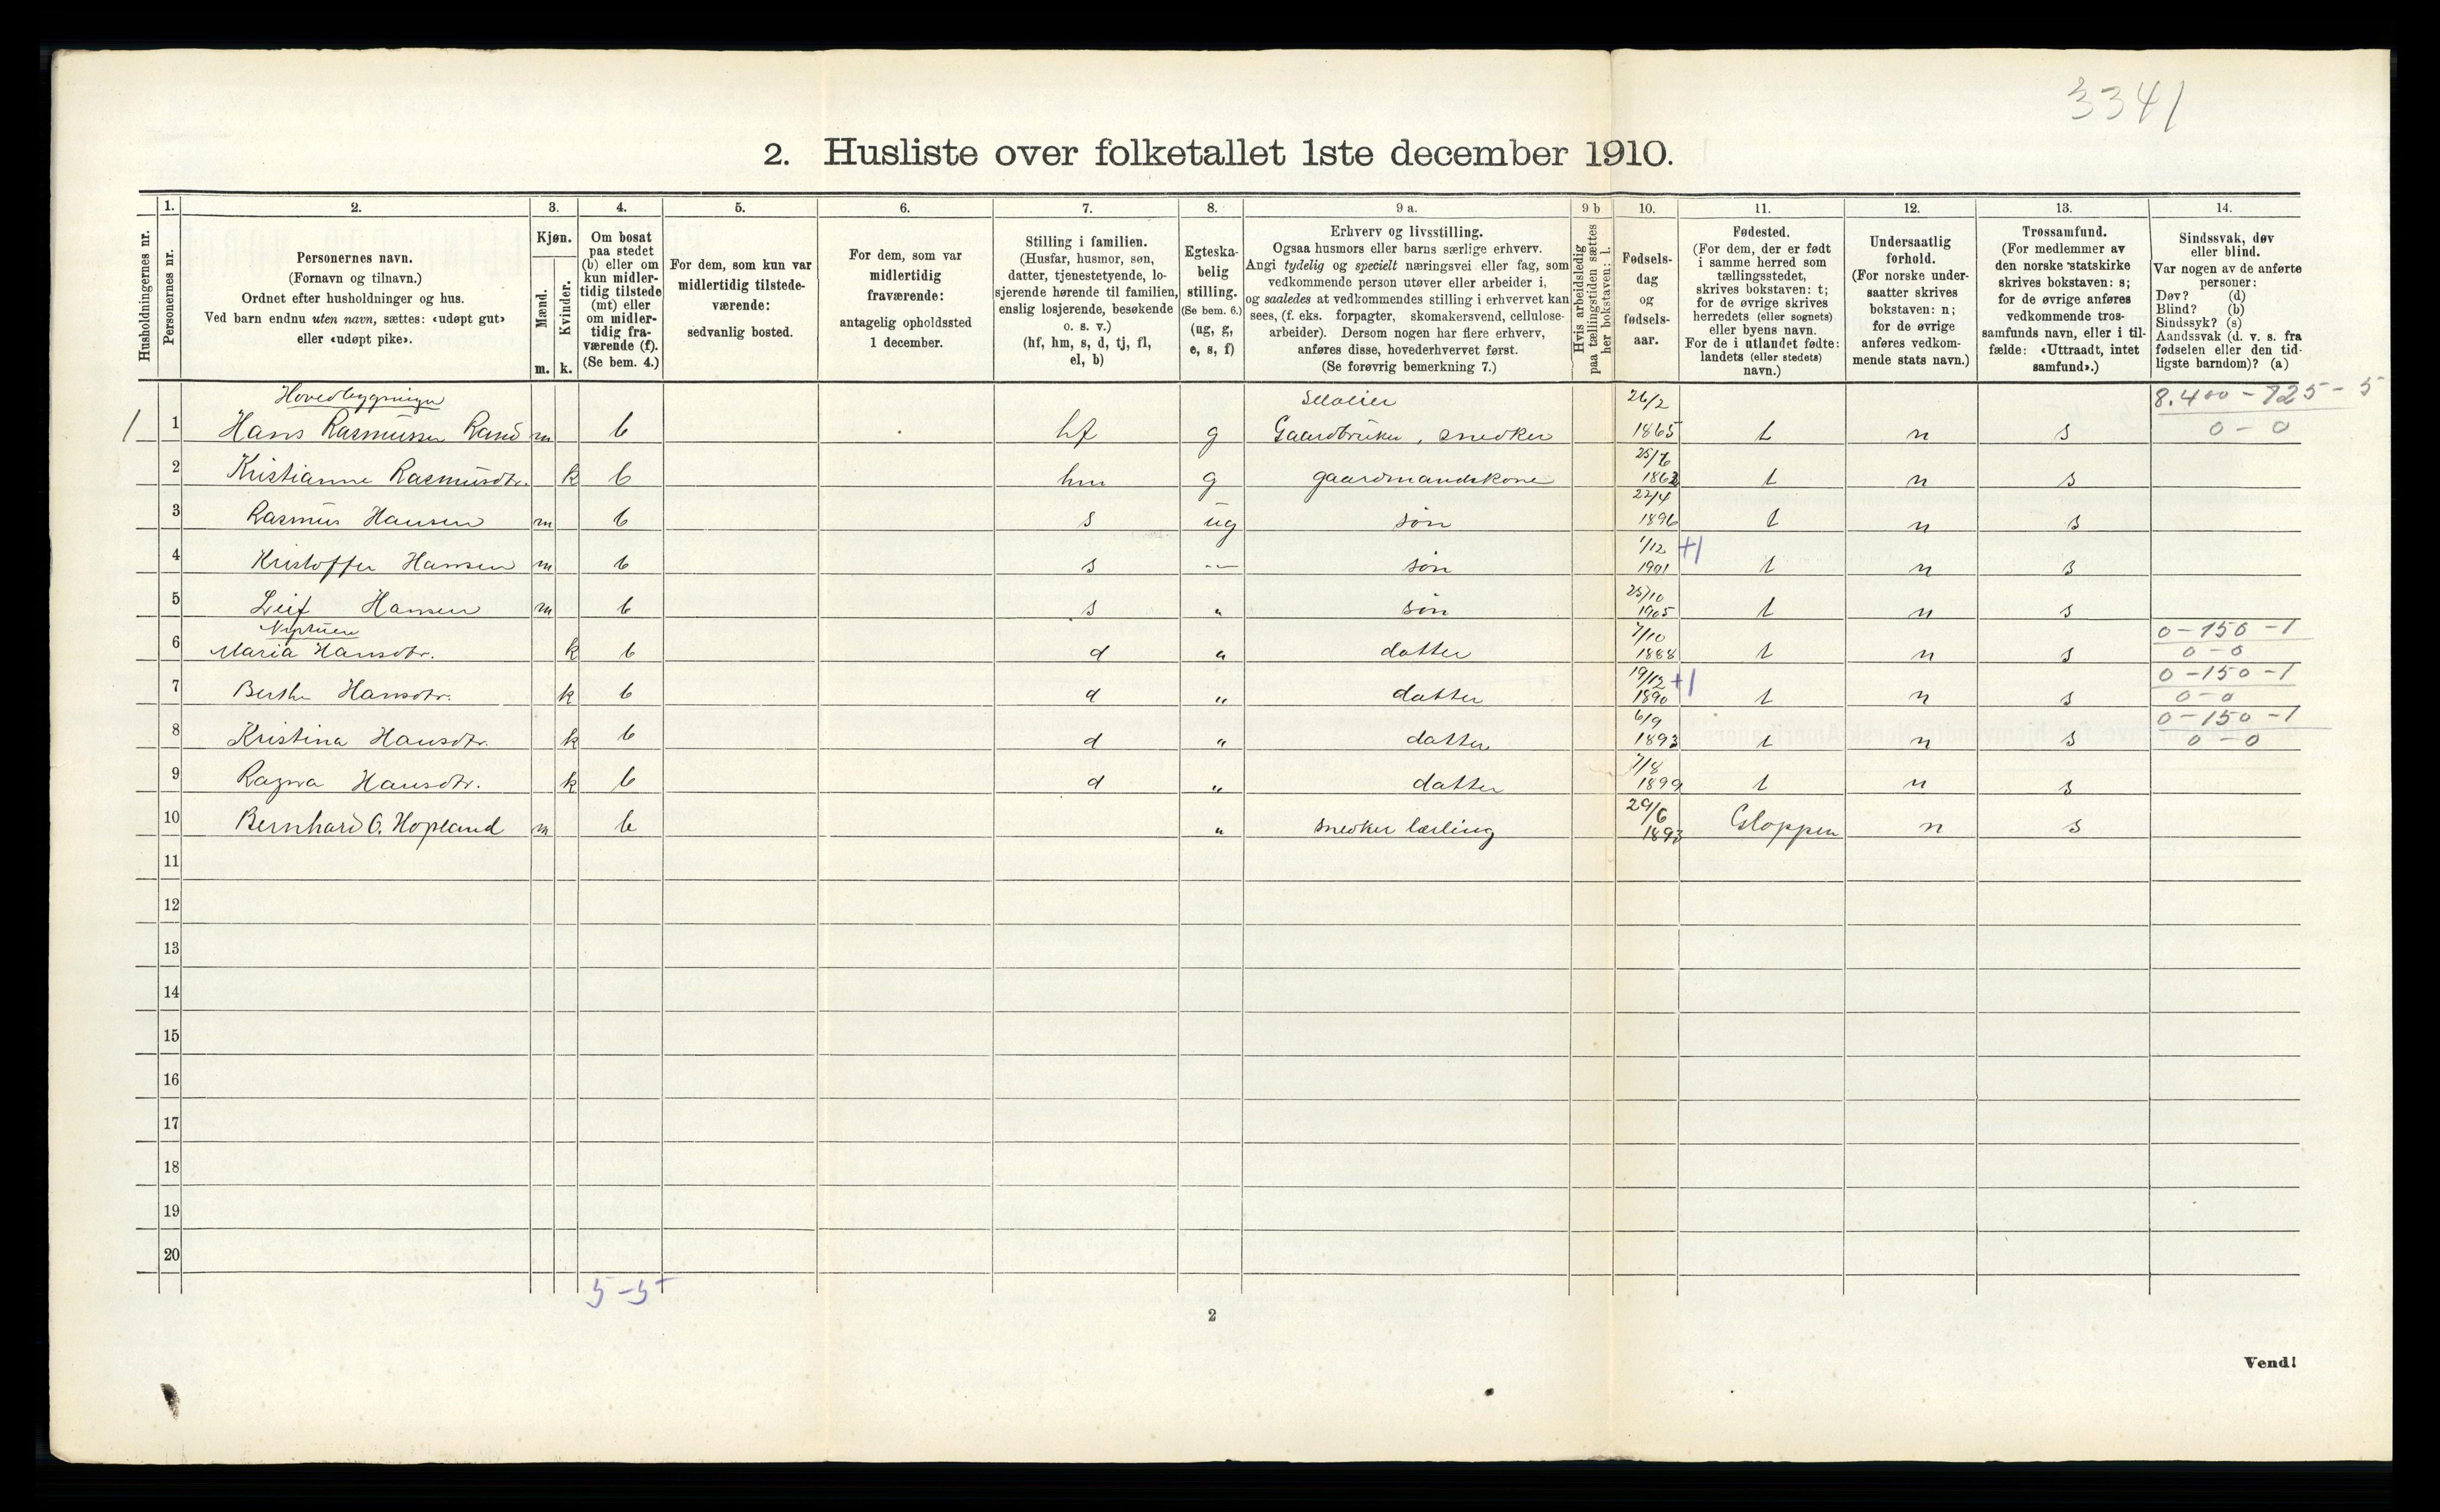 3341
2. Husliste over folketallet 1ste december 1910.
1. 2. 3. 4. 5. 6. 7. 8. 9 a. 9 b 10. 11. 12. 13. 14.
Husholdningernes nr.
Personernes nr.
Personernes navn.
(Fornavn og tilnavn.)
Ordnet efter husholdninger og hus.
Ved barn endnu uten navn, sættes: «udøpt gut»
eller «udøpt pike».
Kjøn.
Mænd.
Kvinder.
m. k.
Om bosat
paa stedet
(b) eller om
kun midler-
tidig tilstede
(mt) eller
om midler-
tidig fra-
værende (f).
(Se bem. 4.)
For dem, som kun var
midlertidig tilstede-
værende:
sedvanlig bosted.
For dem, som var
midlertidig
fraværende:
antagelig opholdssted
1 december.
Stilling i familien.
(Husfar, husmor, søn,
datter, tjenestetyende, lo-
sjerende hørende til familien,
enslig losjerende, besøkende
o. s. v.)
(hf, hm, s, d, tj, fl,
el, b)
Egteska-
belig
stilling.
(Se bem. 6.)
(ug, g,
e, s, f)
Erhverv og livsstilling.
Ogsaa husmors eller barns særlige erhverv.
Angi tydelig og specielt næringsvei eller fag, som
vedkommende person utøver eller arbeider i,
og saaledes at vedkommendes stilling i erhvervet kan
sees, (f. eks. forpagter, skomakersvend, cellulose-
arbeider). Dersom nogen har flere erhverv,
anføres disse, hovederhvervet først.
(Se forøvrig bemerkning 7.)
Hvis arbeidsledig
paa tællingstiden sættes
her bokstaven: l.
Fødsels-
dag
og
fødsels-
aar.
Fødested.
(For dem, der er født
i samme herred som
tællingsstedet,
skrives bokstaven: t;
for de øvrige skrives
herredets (eller sognets)
eller byens navn.
For de i utlandet fødte:
landets (eller stedets)
navn.)
Undersaatlig
forhold.
(For norske under-
saatter skrives
bokstaven: n;
for de øvrige
anføres vedkom-
mende stats navn.)
Trossamfund.
(For medlemmer av
den norske statskirke
skrives bokstaven: s;
for de øvrige anføres
vedkommende tros-
samfunds navn, eller i til-
fælde: «Uttraadt, intet
samfund».)
Sindssvak, døv
eller blind.
Var nogen av de anførte
personer:
Døv? (d)
Blind? (b)
Sindssyk? (s)
Aandssvak (d. v. s. fra
fødselen eller den tid-
ligste barndom)? (a)
Hovedbygningen 26/2 8.400 - 725 - 5
1 1 Hans Rasmussen Rand m b hf g Gaardbruker, snedker 1865 t n s 0 - 0
25/6
2 Kristianne Rasmusdtr. k b hm g gaardmandskone 1862 t n s
22/4
3 Rasmus Hansen m b s ug søn 1896 t n s
1/12 +1
4 Kristoffer Hansen m b s -"- søn 1901 t n s
25/10
5 Leif Hansen m b s " søn 1905 t n s
7/10 0 - 150 - 1
6 Maria Hansdtr. k b d " datter 1888 t n s 0 - 0
19/12 +1 0 - 150 - 1
7 Berthe Hansdtr. k b d " datter 1890 t n s 0 - 0
6/9 0 - 150 - 1
8 Kristina Hansdtr. k b d " datter 1893 t n s 0 - 0
7/8
9 Ragna Hansdtr. k b d " datter 1899 t n s
29/6
10 Bernhard O. Hopland m b " snedker lærling 1893 Gloppen n s
11
12
13
14
15
16
17
18
19
20
5 - 5
2
Vend!